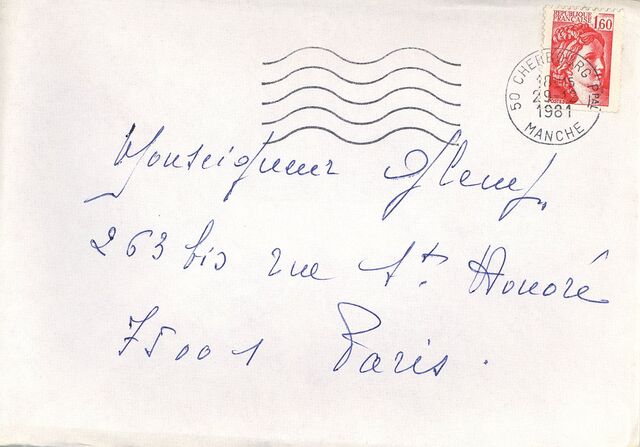 REPUBLIQUE
FRANÇAISE 1,60
50 CHERBOURG PPAL
1981
MANCHE
Monseigneur
263 bis rue St. Honoré
75001 Paris.